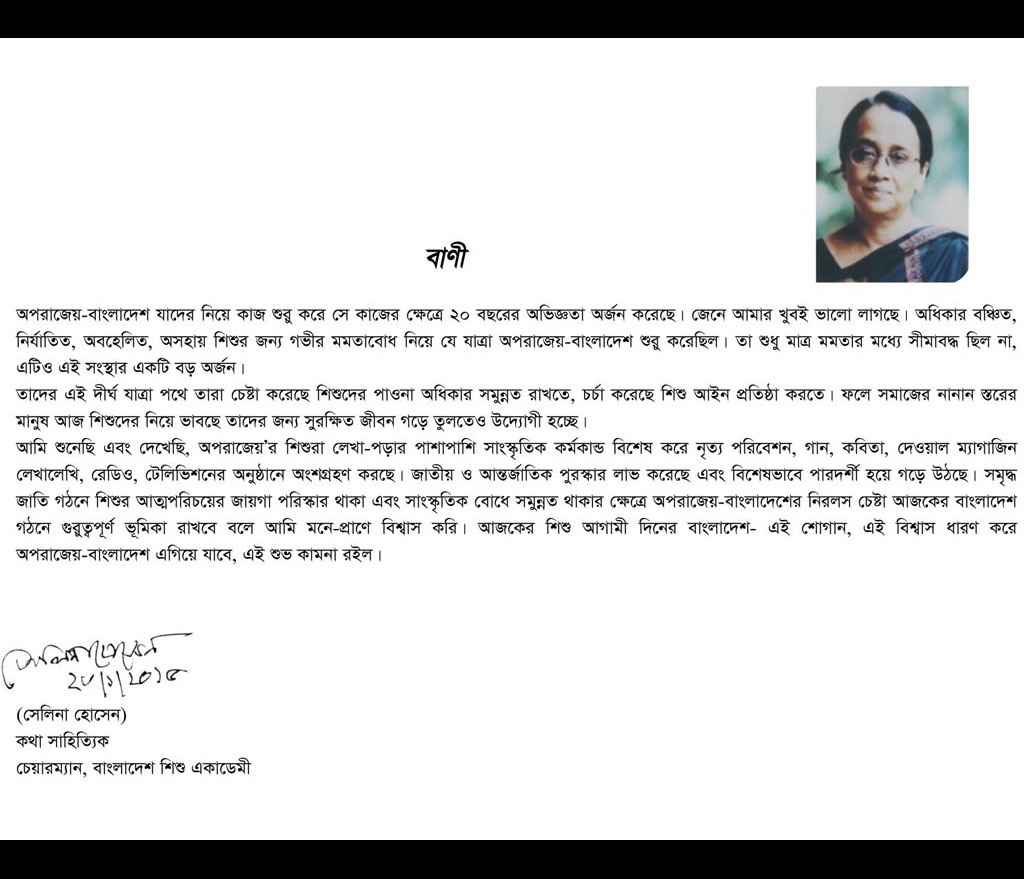 বাণী
অপরাজেয়-বাংলাদেশ যাদের নিয়ে কাজ শুরু করে সে কাজের ক্ষেত্রে ২০ বছরের অভিজ্ঞতা অর্জন করেছে। জেনে আমার খুবই ভালো লাগছে। অধিকার বঞ্চিত,
নির্যাতিত, অবহেলিত, অসহায় শিশুর জন্য গভীর মমতাবোধ নিয়ে যে যাত্রা অপরাজেয়-বাংলাদেশ শুরু করেছিল। তা শুধু মাত্র মমতার মধ্যে সীমাবদ্ধ ছিল না,
এটিও এই সংস্থার একটি বড় অর্জন।
তাদের এই দীর্ঘ যাত্রা পথে তারা চেষ্টা করেছে শিশুদের পাওনা অধিকার সমুন্নত রাখতে, চর্চা করেছে শিশু আইন প্রতিষ্ঠা করতে। ফলে সমাজের নানান স্তরের
মানুষ আজ শিশুদের নিয়ে ভাবছে তাদের জন্য সুরক্ষিত জীবন গড়ে তুলতেও উদ্যোগী হচ্ছে।
আমি শুনেছি এবং দেখেছি, অপরাজেয়'র শিশুরা লেখা-পড়ার পাশাপাশি সাংস্কৃতিক কর্মকান্ড বিশেষ করে নৃত্য পরিবেশন, গান, কবিতা, দেওয়াল ম্যাগাজিন
লেখালেখি, রেডিও, টেলিভিশনের অনুষ্ঠানে অংশগ্রহণ করছে। জাতীয় ও আন্তর্জাতিক পুরস্কার লাভ করেছে এবং বিশেষভাবে পারদর্শী হয়ে গড়ে উঠছে। সমৃদ্ধ
জাতি গঠনে শিশুর আত্মপরিচয়ের জায়গা পরিস্কার থাকা এবং সাংস্কৃতিক বোধে সমুন্নত থাকার ক্ষেত্রে অপরাজেয়-বাংলাদেশের নিরলস চেষ্টা আজকের বাংলাদেশ
গঠনে গুরুত্বপূর্ণ ভূমিকা রাখবে বলে আমি মনে-প্রাণে বিশ্বাস করি। আজকের শিশু আগামী দিনের বাংলাদেশ- এই শোগান, এই বিশ্বাস ধারণ করে
অপরাজেয়-বাংলাদেশ এগিয়ে যাবে, এই শুভ কামনা রইল।
সেলিনা হোসেন
(সেলিনা হোসেন)
কথা সাহিত্যিক
চেয়ারম্যান, বাংলাদেশ শিশু একাডেমী